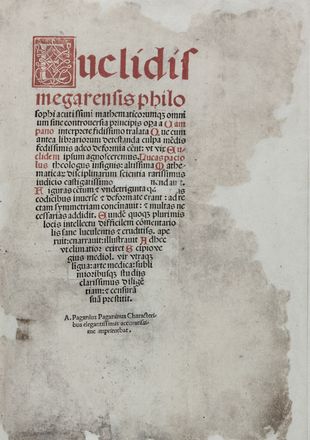 Euclidis
megarensis philo
sophi acutissimi mathematicorumque omni
um sine controversia principis opa a Cam
pano interprete fidissimo tralata Que cum
antea librariorum detestanda culpa mendis
fedissimis adeo deformia eent: vt vix Eu
clidem ipsum agnosceremus. Lucas pacio
lus theologus insignis: altissima Mathe
maticar disciplinarum scientia rarissimus
iudicio castigatissimo mendauit.
Figuras centum et vndetriginta q
codicibus inverse et deformate erant: ad re
ctam symmetriam concinauit: et multas ne
cessarias addidit. Eundē quoque plurimis
locis intellectu difficilem cōmentario
lis sane luculentis et eruditiss. ape
ruit: enarrauit: illustrauit Adhec
vt elimatior exiret Scipio
vegius mediol. vir vtraque
ligua: arte medica: subli
mioribusque studijs
clarissimus diligē
tiam: et censurā
suā prestitit.
A. Paganius Paganinus Characteri-
bus elegantissimis accuratissi-
me imprimebat.